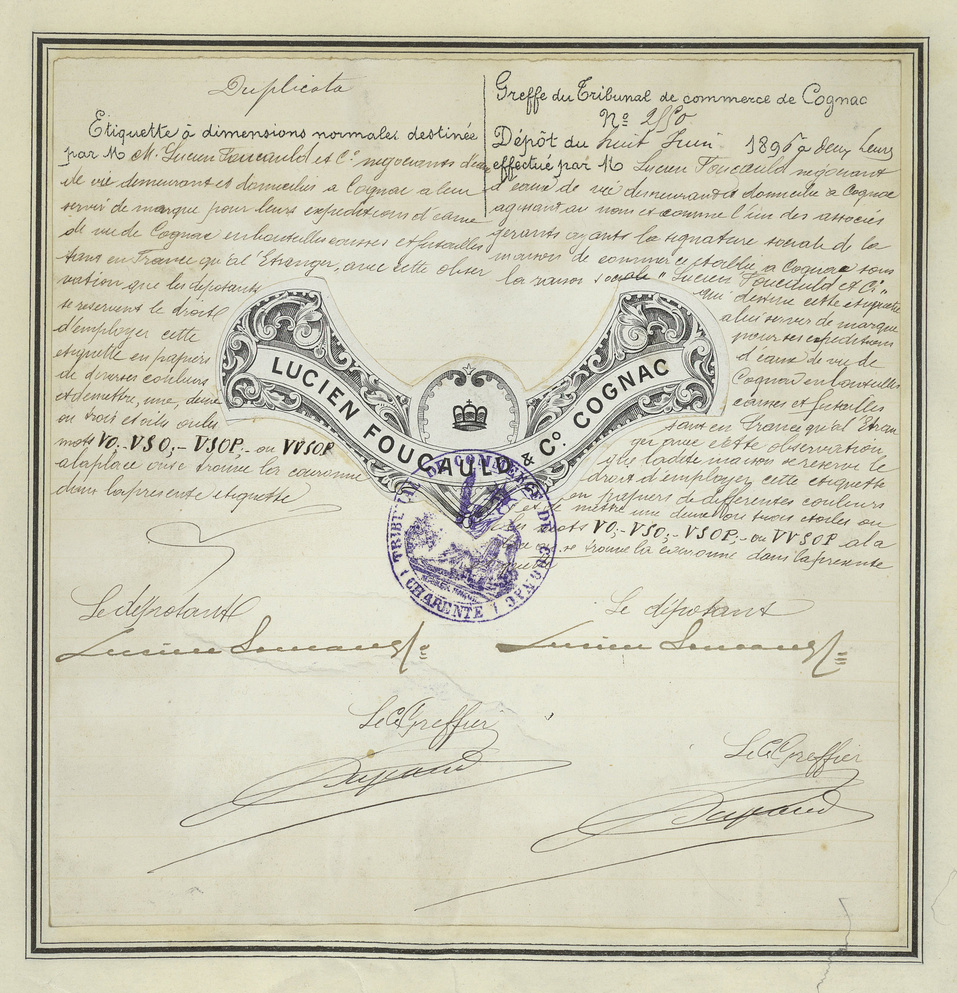 Duplicata
Etiquette à dimensions normales destinée
par M M. Lucien Foucauld et Cº negociants d'eau
de vie demeurant et domiciliés à Cognac a leur
servir de marque pour leurs expeditions d'eaux
de vie de Cognac en bouteilles caisses et futailles
tant en France qu'à l'Etranger, avec cette obser
vation que les déposants
se reservent le droit
d'employer cette
etiquette en papiers
de diverses couleurs
et de mettre, une, deux
ou trois étoiles ou les
mots VO.-VSO,-VSOP.- ou VVSOP
a la place ou se trouve la couronne
dans la présente etiquette
Le déposant
Lucien Foucauld & Cº
Le Cs Greffier
Greffe du Tribunal de commerce de Cognac
Nº
Dépôt du huit Juin 1896 à deux heures
effectué par M Lucien Foucauld negociant
d'eaux de vie demeurant et domicilié à Cognac
agissant au nom et comme l'un des associés
gérants ayants la signature sociale de la
maison de commerce etablie a Cognac sous
la raison sociale "Lucien Foucauld et Cº"
qui destine cette etiquette
a lui servir de marque
pour ses expeditions
d'eaux de vie de
Cognac en bouteilles
caisses et futailles
tant en France qu'a l'Etran
ger avec cette observation
que ladite maison se reserve le
droit d'employer cette etiquette
en papiers de differentes couleurs
et de mettre une deux ou trois etoiles ou
les mots VO,-VSO,-VSOP.- ou VVSOP a la
place ou se trouve la couronne dans la presente
Le déposant
Lucien Foucauld & Cº
Le Cs Greffier
LUCIEN FOUCAULD & Cº COGNAC
TRIBUNAL DE COMMERCE DE COGNAC
(CHARENTE)